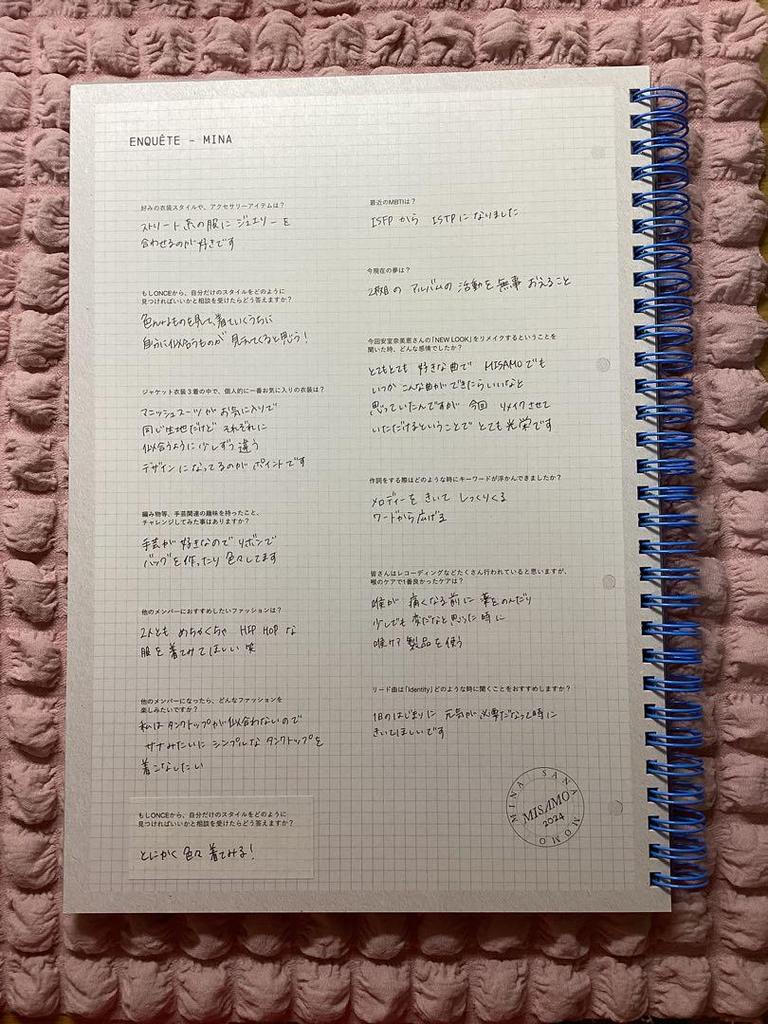 ENQUÊTE - MINA
好みの衣装スタイルや、アクセサリーアイテムは？
ストリート系の服にジュエリーを
合わせるのが好きです
もしONCEから、自分だけのスタイルをどのように
見つければいいかと相談を受けたらどう答えますか？
色んなものを見て、着ていくうちに
自分に似合うものが見えてくると思う！
ジャケット衣装3着の中で、個人的に一番お気に入りの衣装は？
マニッシュスーツがお気に入りで
同じ生地だけど それぞれに
似合うように少しずつ違う
デザインになってるのがポイントです
編み物等、手芸関連の趣味を持ったこと、
チャレンジしてみた事はありますか？
手芸が好きなのでリボンで
バッグを作ったり色々してます
他のメンバーにおすすめしたいファッションは？
2人とも めちゃくちゃ HIP HOP な
服を着てみてほしい 笑
他のメンバーになったら、どんなファッションを
楽しみたいですか？
私はタンクトップが似合わないので
サナみたいに シンプルな タンクトップを
着こなしたい
もしONCEから、自分だけのスタイルをどのように
見つければいいかと相談を受けたらどう答えますか？
とにかく色々着てみる！
最近のMBTIは？
ISFP から ISTPになりました
今現在の夢は？
2枚目の アルバムの 活動を 無事 おえること
今回安室奈美恵さんの「NEW LOOK」をリメイクするということを
聞いた時、どんな感情でしたか？
とてもとても 好きな曲で MISAMOでも
いつか こんな曲ができたらいいなと
思っていたんですが 今回 リメイクさせて
いただけるということで とても光栄です
作詞をする際はどのような時にキーワードが浮かんできましたか？
メロディーを きいて しっくりくる
ワードから広げる
皆さんはレコーディングなどたくさん行われていると思いますが、
喉のケアで1番良かったケアは？
喉が 痛くなる前に 薬をのんだり
少しでも 変だなと思った時に
喉ケア 製品を 使う
リード曲は「Identity」どのような時に聞くことをおすすめしますか？
1日のはじまりに 元気が必要だなって時に
きいてほしいです
MINA SANA MOMO
MISAMO
2024